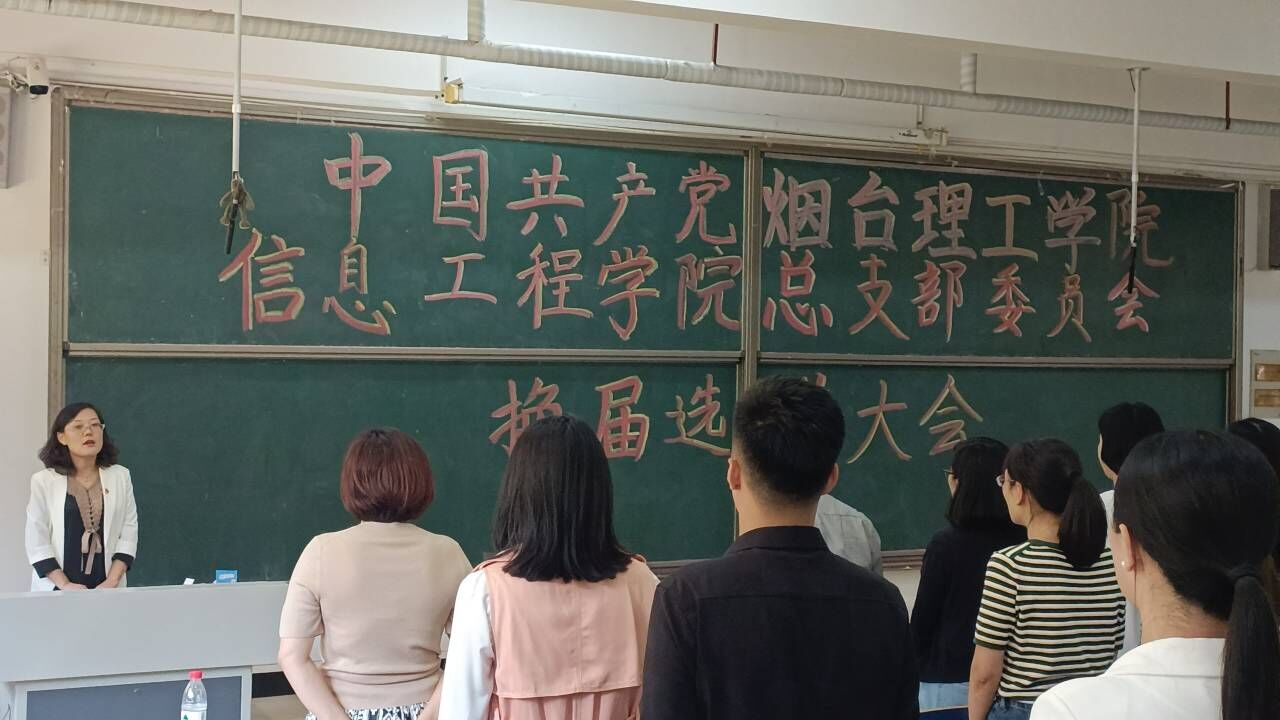 中国共产党烟台理工学院
信息工程学院总支部委员会
换届选举大会